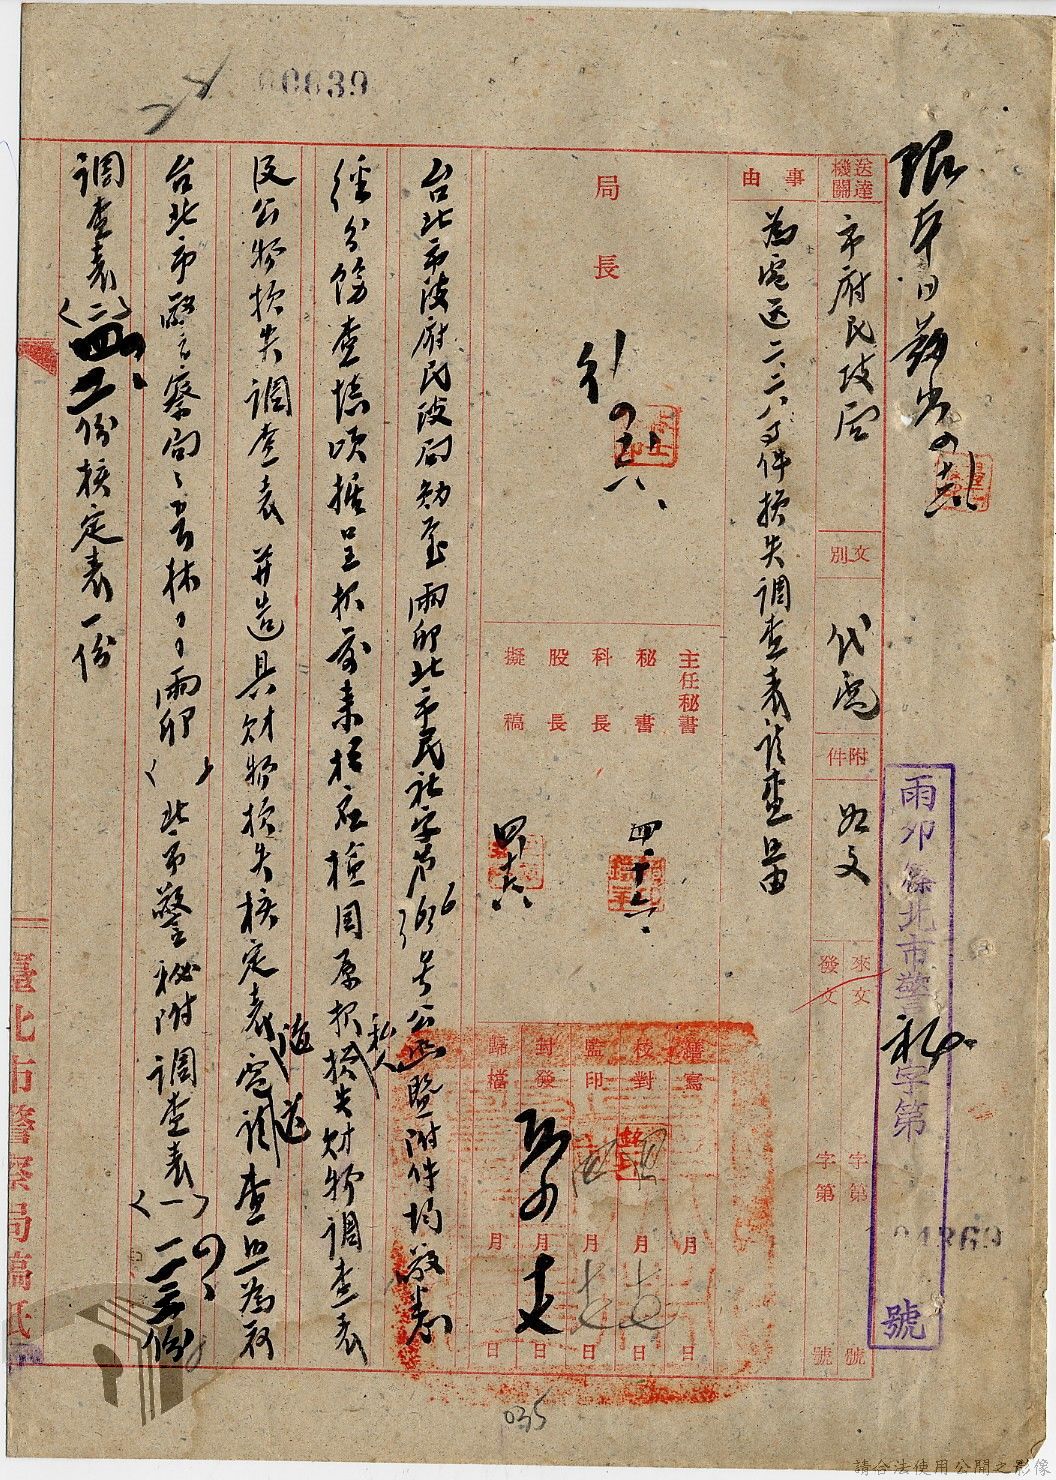 00839
限本日繕發
送達機關
市府民政局
文別
代電
附件
如文
來文
字第
號
發文
字第
號
雨卯 北市警秘字第
04869
號
事由
為電送二、二八事件損失調查表請查照由
局長
主任秘書
秘書
四、十六、
科長
股長
擬稿
四、十六
繕寫
月
日
校對
月
日
監印
月
日
封發
月
日
歸檔
月
日
台北市政府民政局勛鑒雨卯北市民社字第 號公函暨附件均敬悉
經分飭查填頃據呈報前來相應檢同原報私人損失財物調查表
及公物損失調查表并造具財物損失核定表電請查照為荷
台北市警察局局長林 雨卯( )北市警秘附調查表(一) 份
調查表(二) 二份核定表一份
臺北市警察局稿紙
035
請合法使用公開之影像